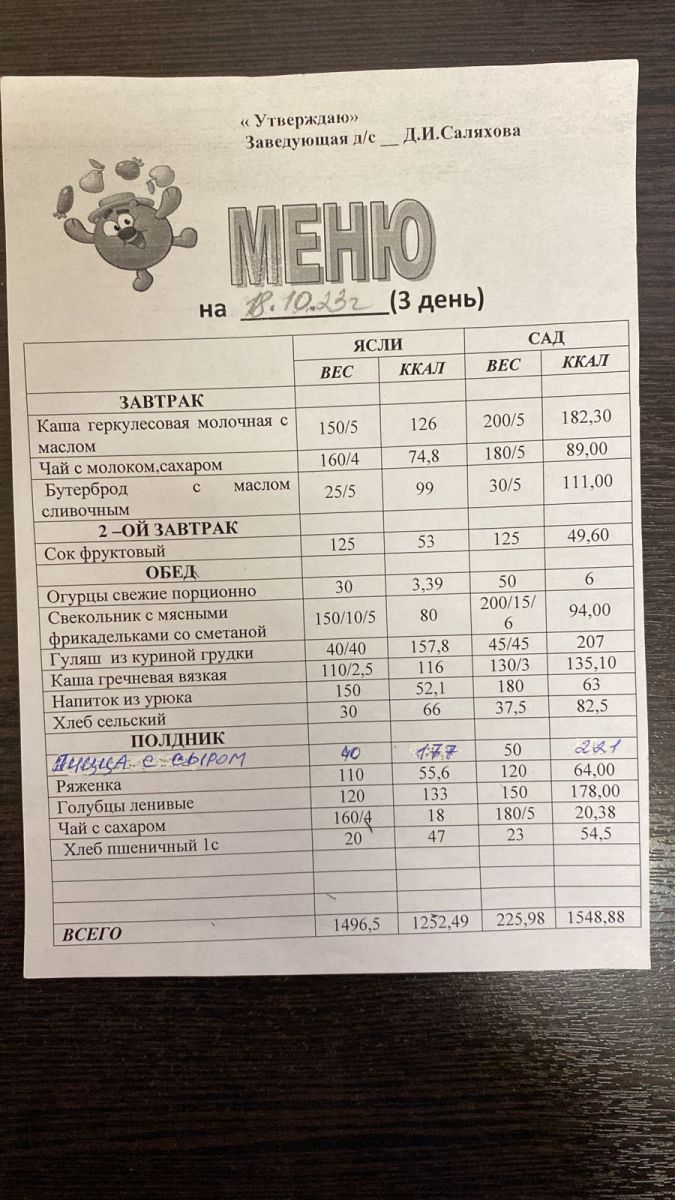 « Утверждаю»
Заведующая д/с __ Д.И.Саляхова
МЕНЮ
на 18.10.23г (3 день)
ЯСЛИ САД
ВЕС ККАЛ ВЕС ККАЛ
ЗАВТРАК
Каша геркулесовая молочная с маслом 150/5 126 200/5 182,30
Чай с молоком,сахаром 160/4 74,8 180/5 89,00
Бутерброд с маслом сливочным 25/5 99 30/5 111,00
2 –ОЙ ЗАВТРАК
Сок фруктовый 125 53 125 49,60
ОБЕД
Огурцы свежие порционно 30 3,39 50 6
Свекольник с мясными фрикадельками со сметаной 150/10/5 80 200/15/6 94,00
Гуляш из куриной грудки 40/40 157,8 45/45 207
Каша гречневая вязкая 110/2,5 116 130/3 135,10
Напиток из урюка 150 52,1 180 63
Хлеб сельский 30 66 37,5 82,5
ПОЛДНИК
Пицца с сыром 40 177 50 221
Ряженка 110 55,6 120 64,00
Голубцы ленивые 120 133 150 178,00
Чай с сахаром 160/4 18 180/5 20,38
Хлеб пшеничный 1с 20 47 23 54,5
ВСЕГО 1496,5 1252,49 225,98 1548,88